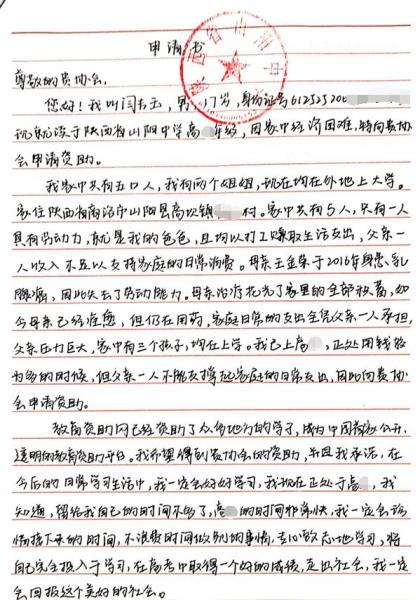 申请书
陕西省山阳
尊敬的贵协会:
您好!我叫闫 男,17岁,身份证号612525200
现就读于陕西省山阳中学高 年级,因家中经济困难,特向贵协
会申请资助。
我家中共有五口人,我有两个姐姐,现在均在外地上大学。
家住陕西省商洛市山阳县高坝镇 村。家中共有5人,只有一人
具有劳动力,就是我的爸爸,且均以打工赚取生活支出,父亲一
人收入不足以支持家庭的日常消费。母亲王金荣于2016年身患乳
腺癌,因此失去了劳动能力。母亲治疗花光了家里的全部积蓄,如
今母亲已经痊愈,但仍在用药,家庭日常的支出全凭父亲一人承担,
父亲压力巨大,家中有三个孩子,均在上学。我已上高 ,正处用钱较
为多的时候,但父亲一人不能支撑起家庭的日常支出,因此向贵协
会申请资助。
教育资助网已经资助了众多地方的学子,成为中国首家公开、
透明的教育资助平台。我希望得到贵协会的资助,并且我承诺,在
今后的日常学习生活中,我一定会好好学习,我现在正处于高 ,我
知道,留给我自己的时间不够了,高 的时间非常快,我一定会珍
惜接下来的时间,不浪费时间做别的事情,专心致志地学习,将
自己完全投入于学习,在高考中取得一个好的成绩,走出社会,我一定
会回报这个美好的社会。